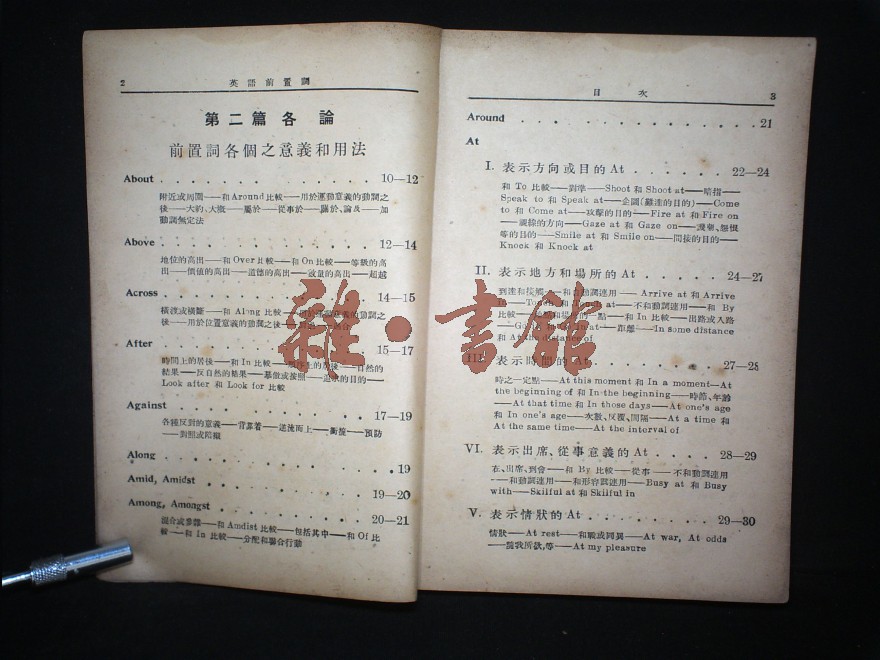 2 英語前置詞
第二篇各論
前置詞各個之意義和用法
About . . . . . . . . . . 10—12
附近或周圍——和Around比較——用於運動意義的動詞之
後——大約、大概——屬於——從事於——關於、論及——加
動詞無定法
Above . . . . . . . . . . 12—14
地位的高出——和Over比較——和On比較——等級的高
出——價值的高出——道德的高出——數量的高出——超越
Across . . . . . . . . . . 14—15
橫渡或橫斷——和Along比較——用於運動意義的動詞之
後——用於位置意義的動詞之後
After . . . . . . . . . . 15—17
時間上的居後——和In比較——的居後——自然的
結果——反自然的結果——摹倣或按照——追求的目的——
Look after 和 Look for 比較
Against . . . . . . . . . . 17—19
各種反對的意義——背靠着——逆流而上——衝撞——預防
——對照或陪襯
Along . . . . . . . . . . 19
Amid, Amidst . . . . . . . . . . 19—20
Among, Amongst . . . . . . . . . . 20—21
混合或參雜——和Amdist比較——包括其中——和Of比
較——和In比較——分配和聯合行動
目次 3
Around . . . . . . . . . . 21
At
I. 表示方向或目的 At . . . . . . 22—24
和 To 比較——對準——Shoot 和 Shoot at——暗指——
Speak to 和 Speak at——企圖(難達的目的)——Come
to 和 Come at——攻擊的目的——Fire at 和 Fire on
——視線的方向——Gaze at 和 Gaze on——譏笑、怨恨
等的目的——Smile at 和 Smile on——間接的目的——
Knock 和 Knock at
II. 表示地方和場所的 At . . . . . . 24—27
到達和接觸——和動詞連用——Arrive at 和 Arrive
In——Touch 和 Touch at——不和動詞連用——和 By
比較——地點和場所的一點——和 In 比較——出路或入路
——Go in 和 Go in at——距離——In some distance
和 At the distance of
III. 表示時間的 At . . . . . . 27—28
時之一定點——At this moment 和 In a moment—At
the beginning of 和 In the beginning——時節、年齡
——At that time 和 In those days——At one's age
和 In one's age——次數、反覆、間隔——At a time 和
At the same time——At the interval of
VI. 表示出席、從事意義的 At . . . . 28—29
在、出席、到會——和 By 比較——從事——不和動詞連用
——和動詞連用——和形容詞連用——Busy at 和 Busy
with——Skilful at 和 Skilful in
V. 表示情狀的 At . . . . . . 29—30
情狀——At rest——和戰或同異——At war, At odds
——隨我所欲,等——At my pleasure
雜·書館